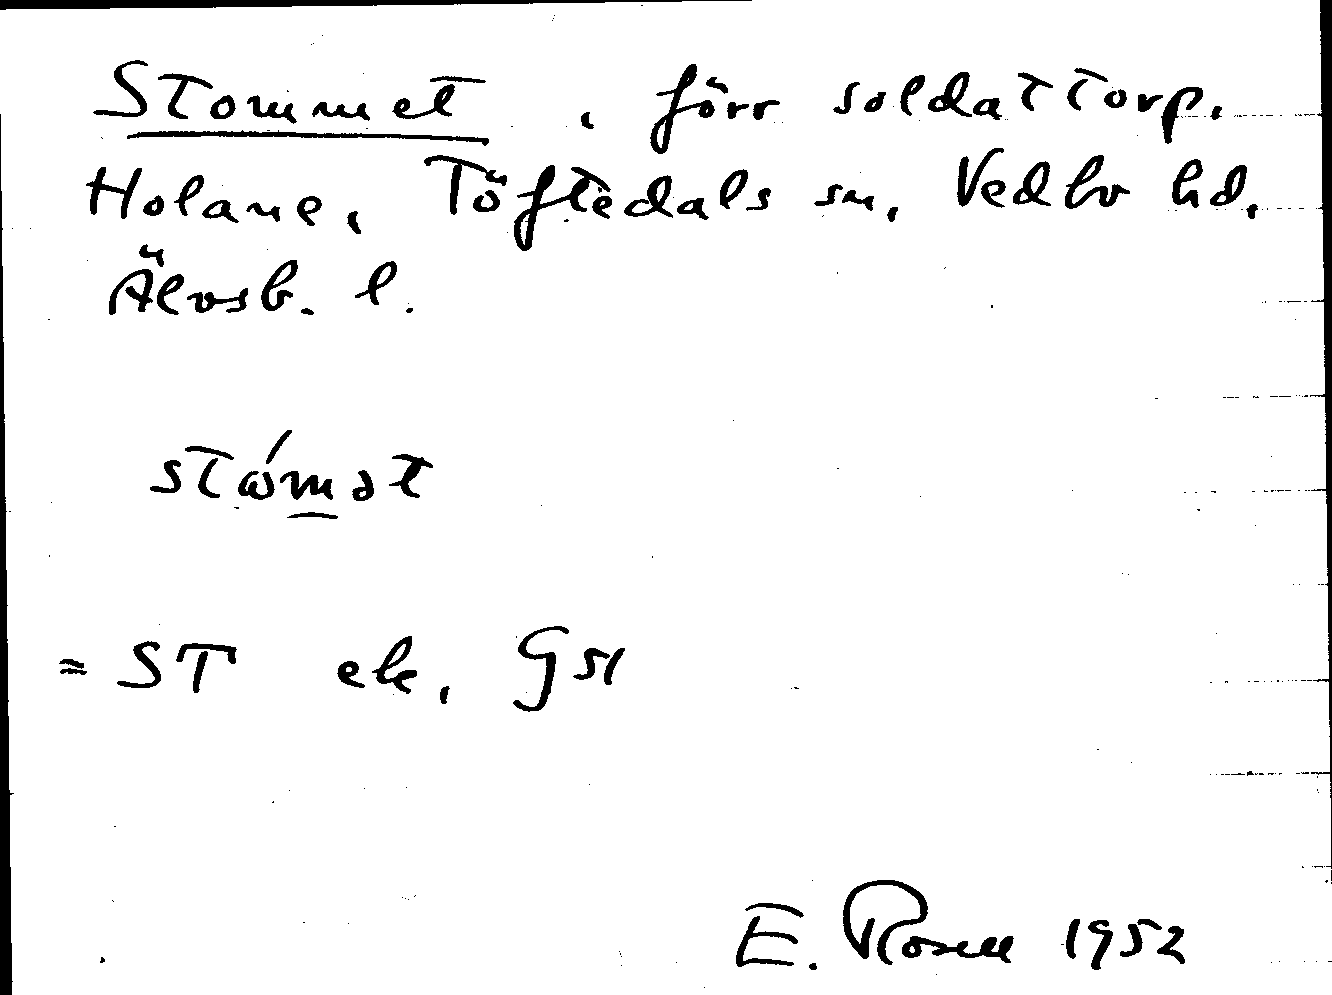 Stommet, förr soldattorp.
Holane, Töftedals sn, Vedbo hd,
Älvsb. l.
stώmət
= ST ek. Gst
E. Rosell 1952